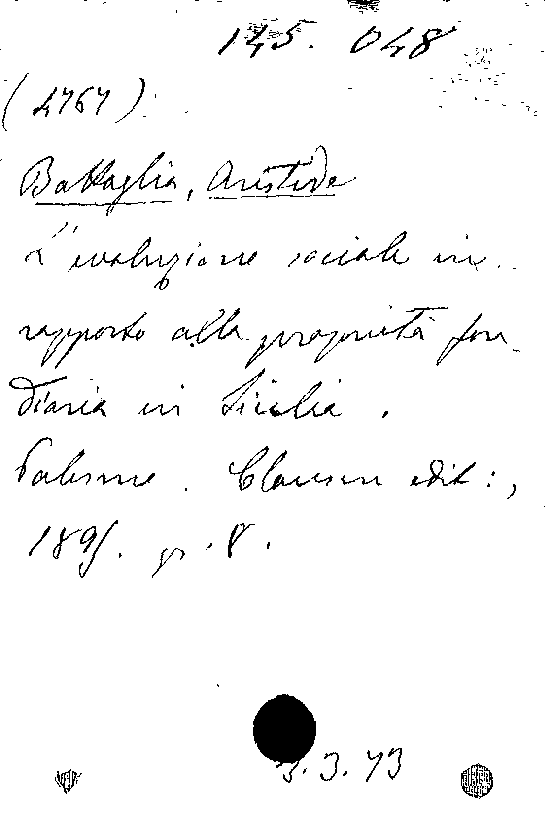 145.048
(4767)
Battaglia, Aristide
L'evoluzione sociale in
rapporto alla proprietà fon-
diaria in Sicilia.
Palermo. Clausen edit:,
1895. gr. 8.
3.3.73